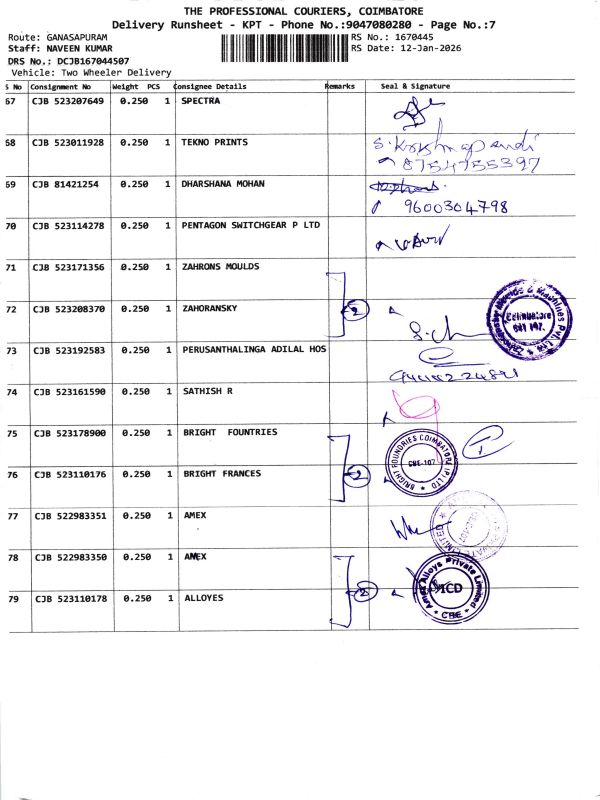 THE PROFESSIONAL COURIERS, COIMBATORE
Delivery Runsheet - KPT - Phone No.:9047080280 - Page No.:7
Route: GANASAPURAM
RS No.: 1670445
Staff: NAVEEN KUMAR
RS Date: 12-Jan-2026
DRS No.: DCJB167044507
Vehicle: Two Wheeler Delivery
S No Consignment No Weight PCS Consignee Details Remarks Seal & Signature
67 CJB 523207649 0.250 1 SPECTRA
68 CJB 523011928 0.250 1 TEKNO PRINTS
8754755397
69 CJB 81421254 0.250 1 DHARSHANA MOHAN
9600304798
70 CJB 523114278 0.250 1 PENTAGON SWITCHGEAR P LTD
71 CJB 523171356 0.250 1 ZAHRONS MOULDS
72 CJB 523208370 0.250 1 ZAHORANSKY 2
Coimbatore
641 107.
73 CJB 523192583 0.250 1 PERUSANTHALINGA ADILAL HOS
74 CJB 523161590 0.250 1 SATHISH R
75 CJB 523178900 0.250 1 BRIGHT FOUNTRIES
76 CJB 523110176 0.250 1 BRIGHT FRANCES 2
BRIGHT FOUNDRIES COIMBATORE (P) LTD
CBE-107
77 CJB 522983351 0.250 1 AMEX
78 CJB 522983350 0.250 1 AMEX
79 CJB 523110178 0.250 1 ALLOYES 2
Amex Alloys Private Limited
CBE